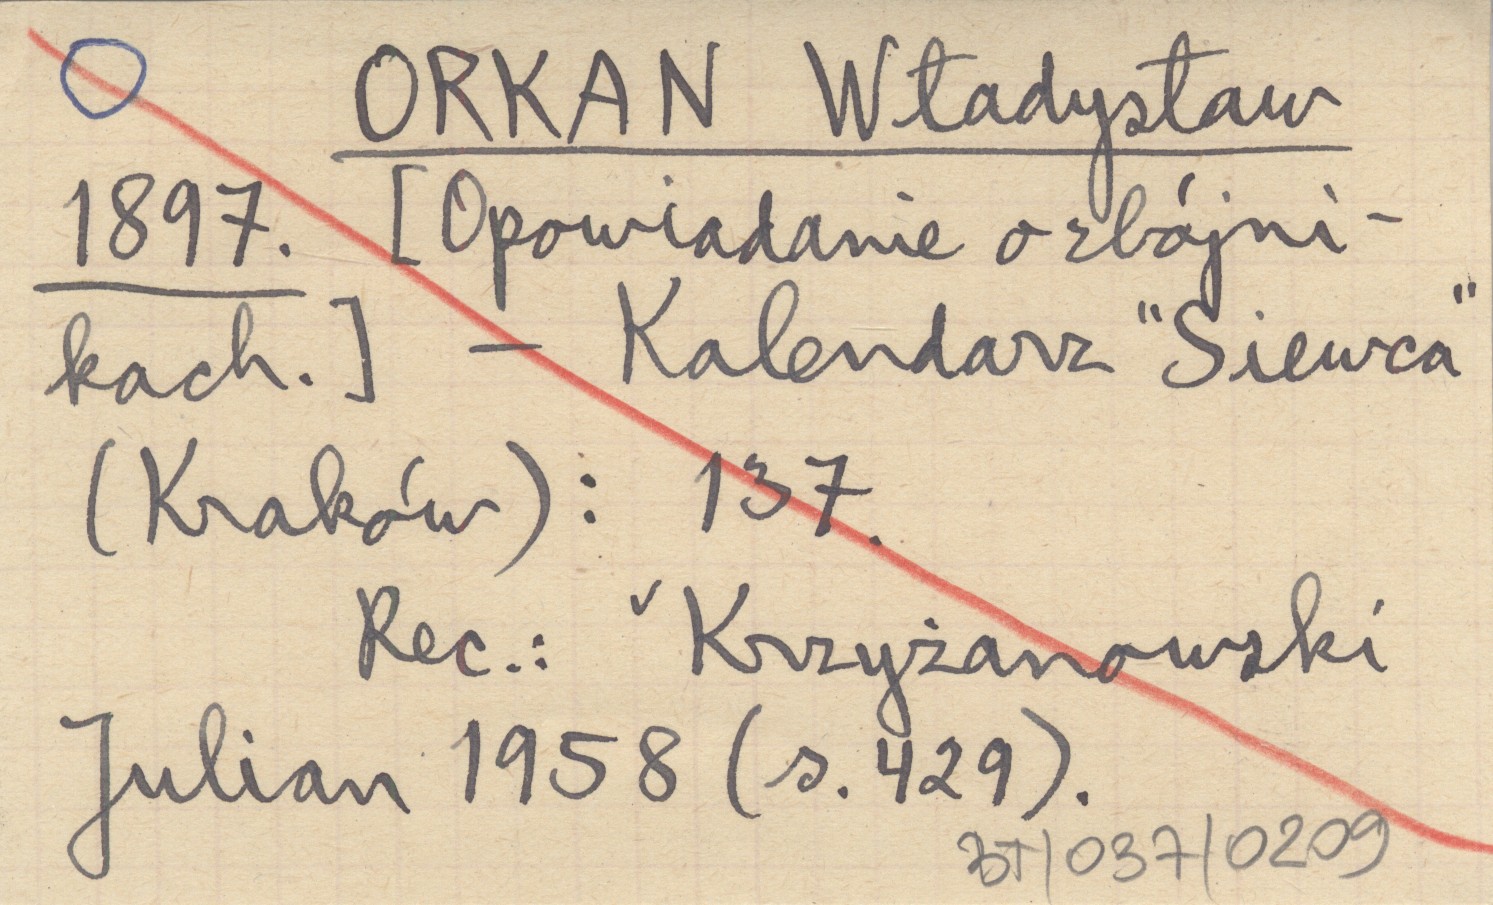 ORKAN Władysław
1897. [Opowiadanie o zbójni-
kach.] — Kalendarz "Siewca"
(Kraków): 137.
Rec.: ˅Krzyżanowski
Julian 1958 (s. 429).
BT/037/0209